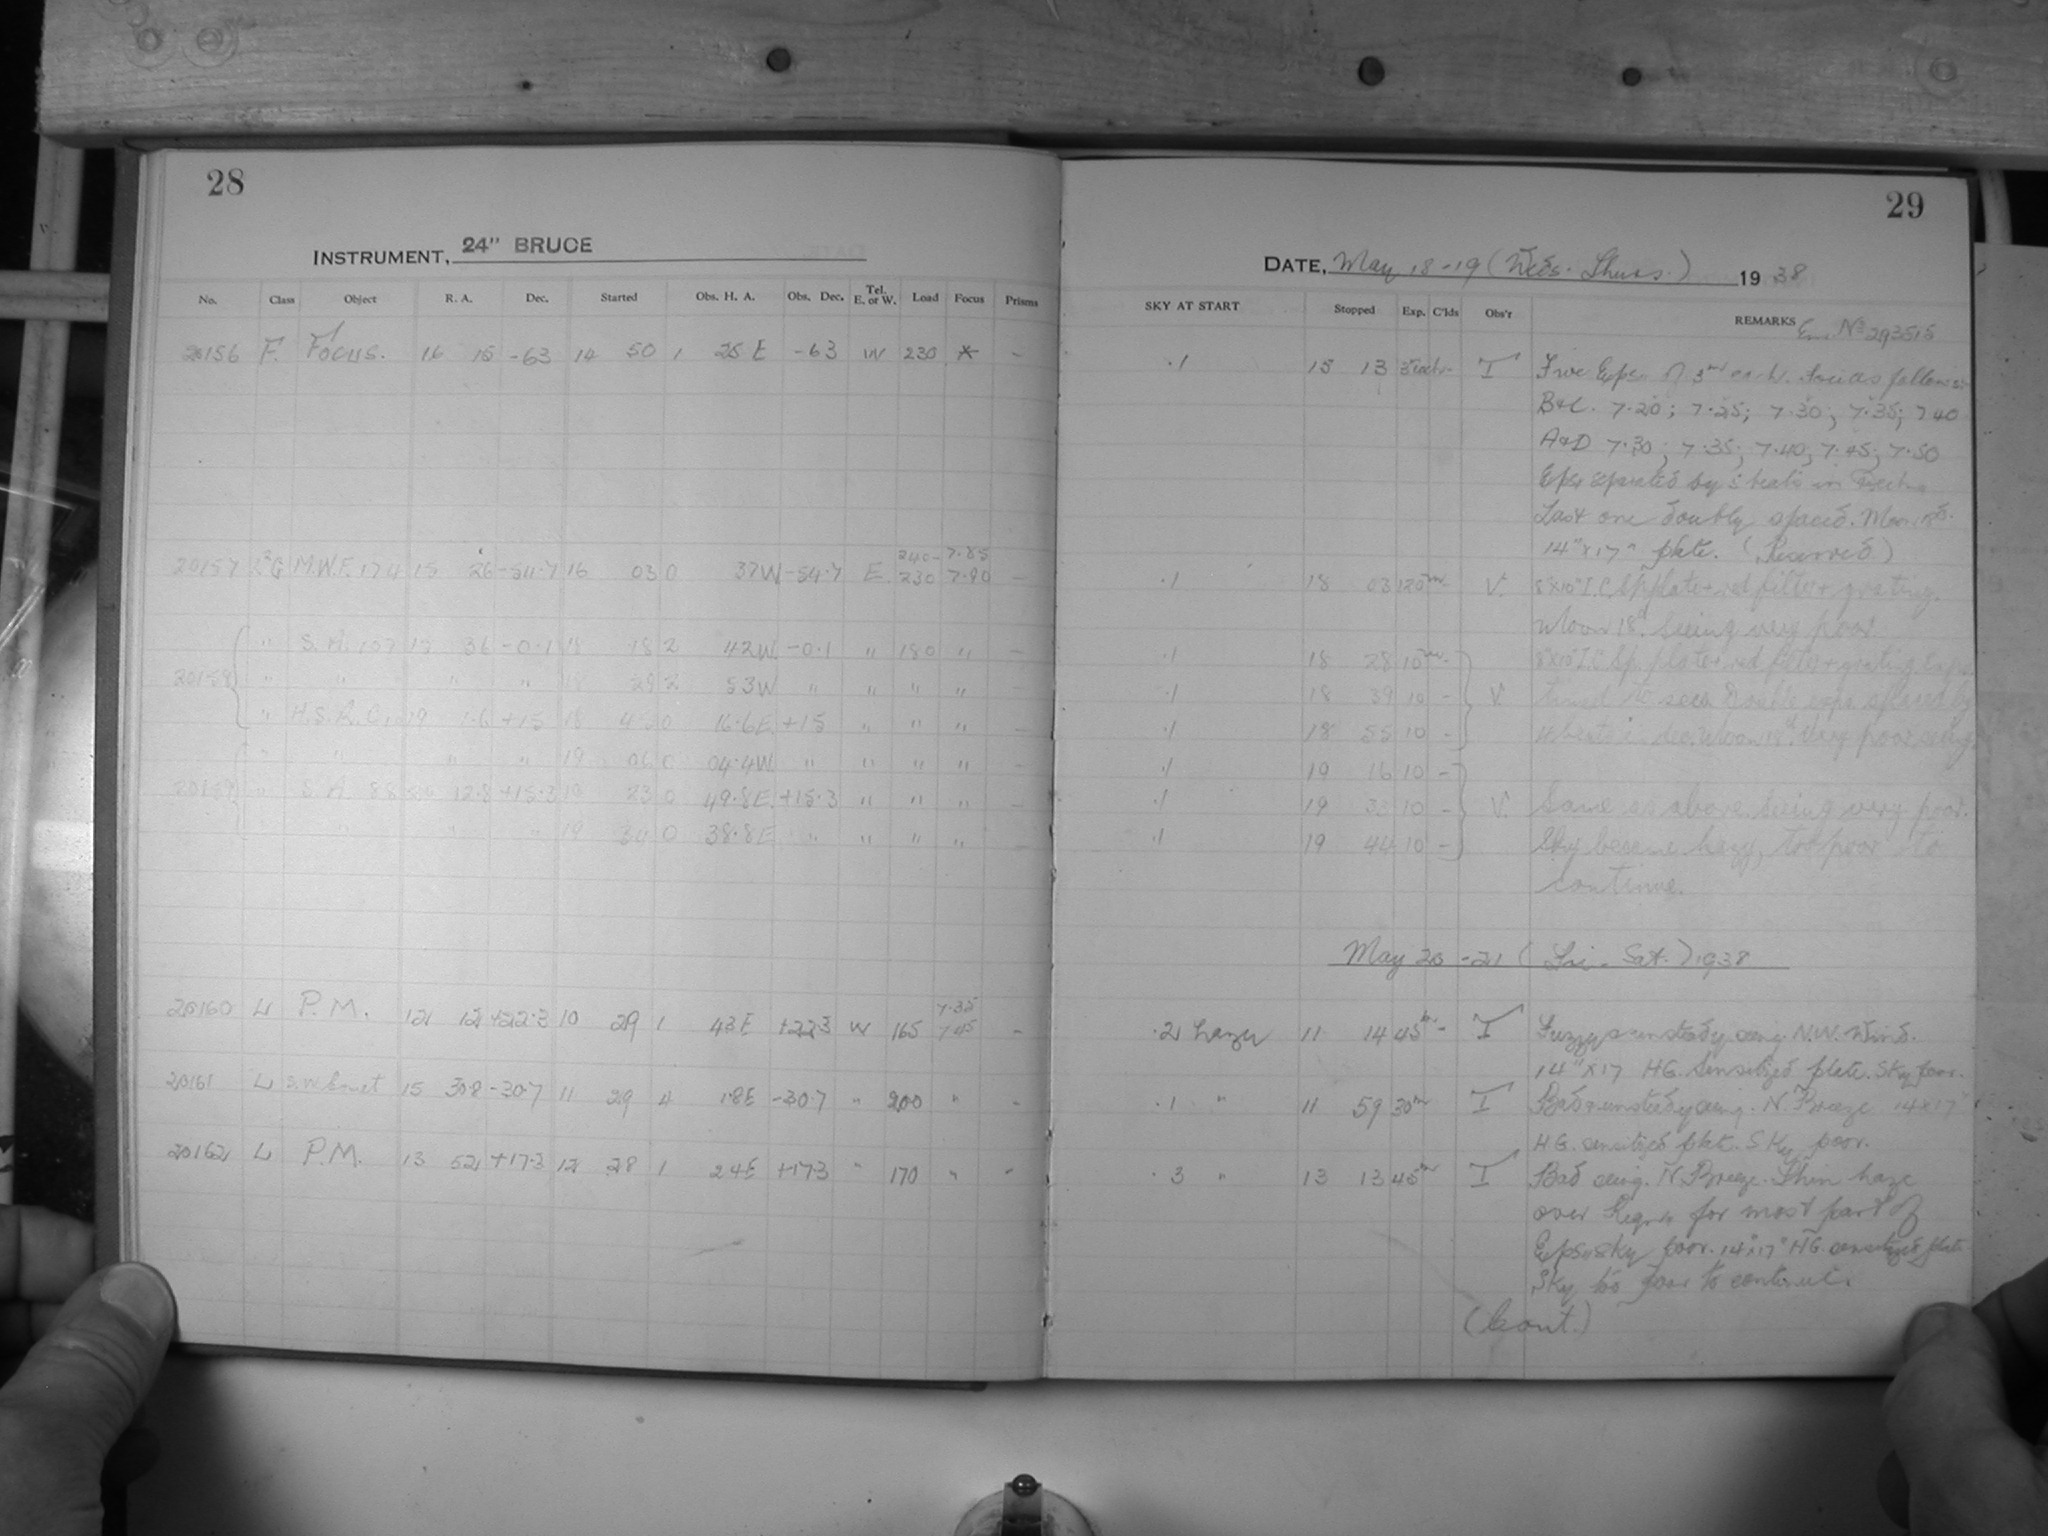 28
INSTRUMENT, 24" BRUCE
No. Class Object R. A. Dec. Started Obs. H. A. Obs. Dec. Tel. E. or W. Load Focus Prisms
20156 F. Focus. 16 15 -63 14 50 1 25 E -63 W 230 * -
240- 7.85
20157 M.W.F. 174 15 26 -54.7 16 03 0 37W -54.7 E 230 7.90 -
" S.A. 107 15 36 -0.1 18 18 2 42W. -0.1 " 180 " -
20158 " " " " 18 29 2 53W " " " " -
" H.S.R.C. 19 1.6 +15 18 45 0 16.6E. +15 " " " -
" " " " 19 06 0 04.4W. " " " " -
20159 " S.A. 88 20 12.8 +15.3 19 23 0 49.8E. +15.3 " " " -
" " " " 19 34 0 38.8E. " " " "
7.35
20160 L P.M. 12 12 +22.3 10 29 1 43E +22.3 W 165 7.45 -
20161 L 15 30.8 -30.7 11 29 4 18E -30.7 " 200 " -
20162 L P.M. 13 52 +17.3 12 28 1 24E +17.3 " 170 " -
29
DATE, May 18-19 (Weds. Thurs.) 1938
SKY AT START Stopped Exp. C'lds Obs'r REMARKS Em. No 293515
.1 15 13 I Five Exps. of 3m each. Foci as follows:-
B&C. 7.20; 7.25; 7.30; 7.35; 7.40
A&D 7.30; 7.35; 7.40; 7.45; 7.50
Exps separated by 5 beats in
Last one doubly spaced. Moon 18d.
14"x17" plate. (Reserved)
.1 18 03 120m - V. 8"x10" I.C. Sp. plate + red filter + grating.
Moon 18d. Seeing very poor.
.1 18 28 10m - 8"x10" I.C. Sp. plate + red filter + grating
.1 18 39 10 - V. secs Double exps. spaced by
.1 18 55 10 - 4 beats in dec. Moon 18d. Very poor seeing.
.1 19 16 10 -
.1 19 33 10 - V. Same as above. Seeing very poor.
.1 19 44 10 - Sky became hazy, too poor to
continue.
May 20-21 (Fri. Sat.) 1938
.2 hazy 11 14 45m - I Fuzzy & unsteady seeing. N.W. Wind.
14"x17 HG. Sensitized plate. Sky poor.
.1 " 11 59 30m I Bad & unsteady seeing. N. Breeze 14x17"
HG. sensitized plate. Sky poor.
.3 " 13 13 45m I Bad seeing. N. Breeze. Thin haze
over Region for most part of
Exps. Sky poor. 14"x17" HG. sensitized plate
Sky too poor to continue.
(Cont.)